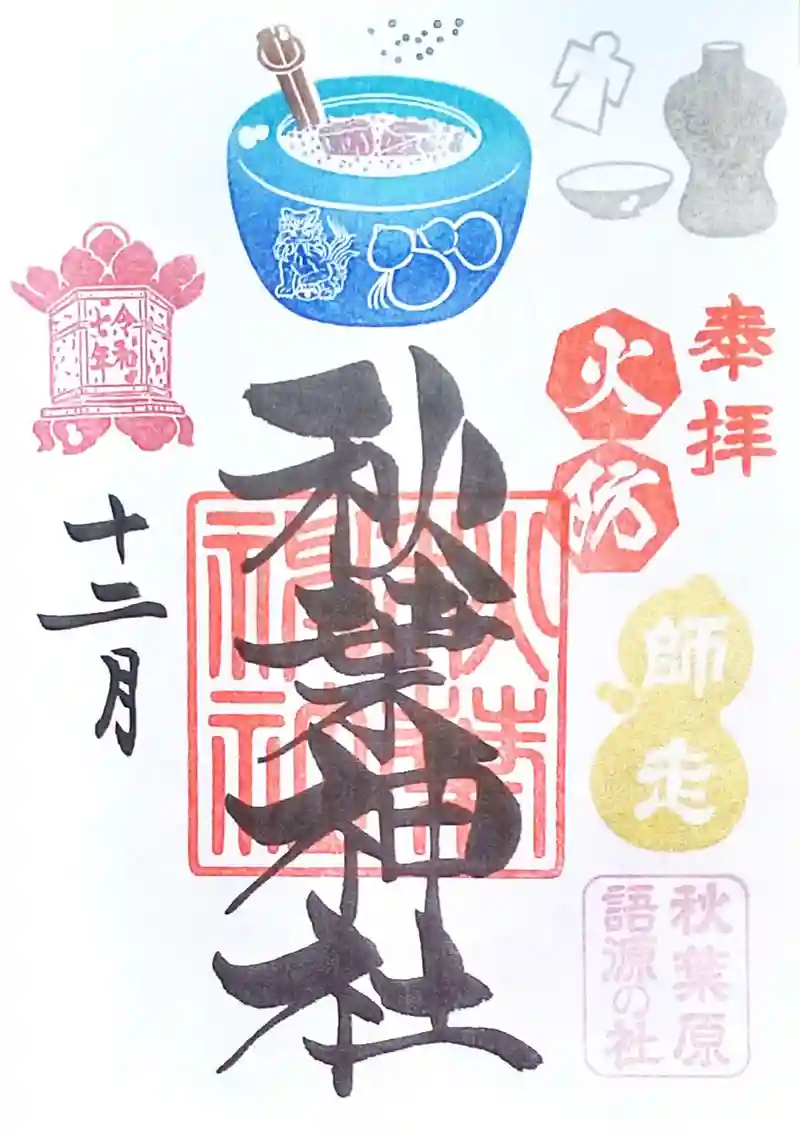 奉拝
火防
師走
秋葉原
語源の社
秋葉神社
秋葉神社
令和
七年
十二月